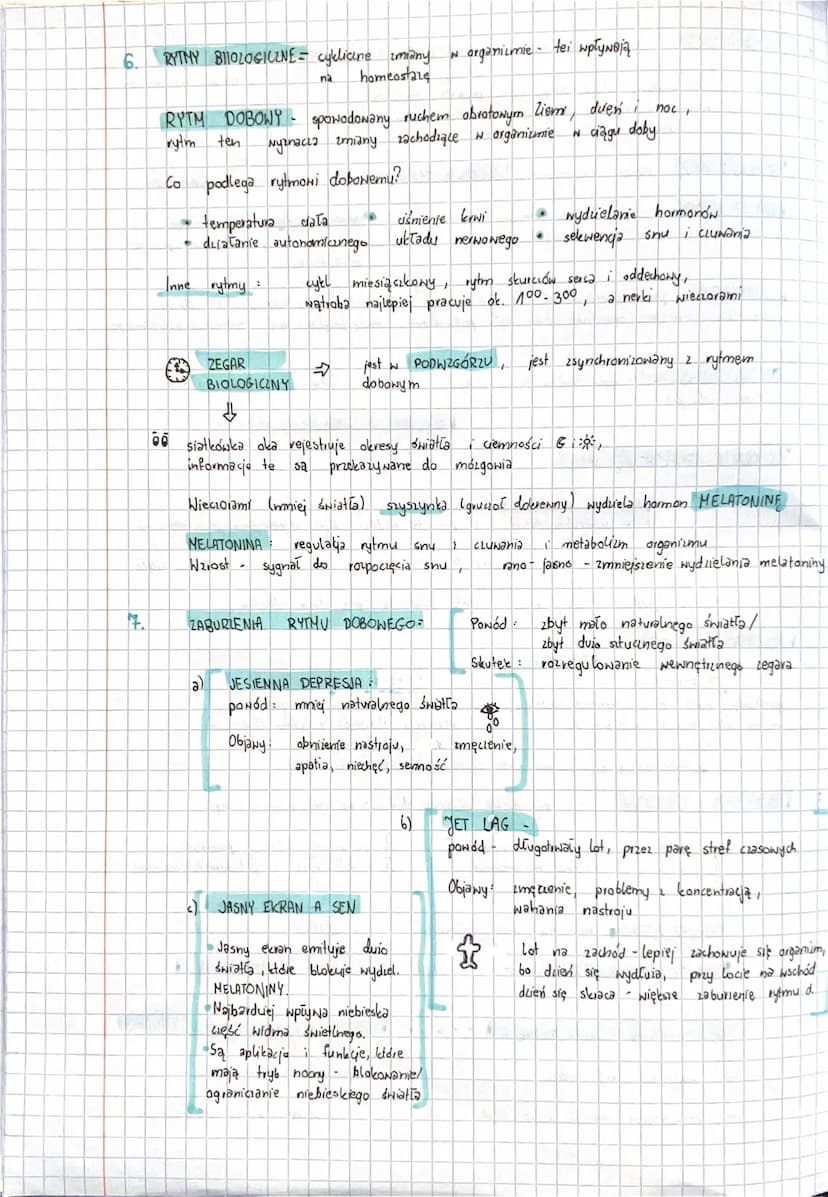 6. RYTMY BIOLOGICZNE = cykliczne zmiany w organizmie - też wpływają
na homeostazę
RYTM DOBOWY - spowodowany ruchem obrotowym Ziemi, dzień i noc,
rytm ten wyznacza zmiany zachodzące w organizmie w ciągu doby
Co podlega rytmowi dobowemu?
• temperatura ciała • ciśnienie krwi • wydzielanie hormonów
• działanie autonomicznego układu nerwowego • sekwencja snu i czuwania
Inne rytmy: cykl miesiączkowy, rytm skurczów serca i oddechowy,
wątroba najlepiej pracuje ok. 1⁰⁰-3⁰⁰, a nerki wieczorami
ZEGAR BIOLOGICZNY ⇒ jest w PODWZGÓRZU, jest zsynchronizowany z rytmem
dobowym
siatkówka oka rejestruje okresy światła i ciemności i,
informacje te są przekazywane do mózgowia
Wieczorami (mniej światła) szyszynka (gruczoł dokrewny) wydziela hormon MELATONINĘ
MELATONINA: regulacja rytmu snu i czuwania i metabolizm organizmu
Wzrost - sygnał do rozpoczęcia snu, rano - jasno - zmniejszenie wydzielania melatoniny
7. ZABURZENIA RYTMU DOBOWEGO: Powód: zbyt mało naturalnego światła/
zbyt dużo sztucznego światła
Skutek: rozregulowanie wewnętrznego zegara
a) JESIENNA DEPRESJA:
powód: mniej naturalnego światła
Objawy: obniżenie nastroju, zmęczenie,
apatia, niechęć, senność
b) JET LAG -
powód - długotrwały lot, przez parę stref czasowych
Objawy: zmęczenie, problemy z koncentracją,
wahania nastroju
Lot na zachód - lepiej zachowuje się organizm,
bo dzień się wydłuża, przy locie na wschód
dzień się skraca - większe zaburzenie rytmu d.
c) JASNY EKRAN A SEN
• Jasny ekran emituje dużo
światła, które blokuje wydziel.
MELATONINY.
• Najbardziej wpływa niebieska
część widma świetlnego.
• Są aplikacje i funkcje, które
mają tryb nocny - blokowanie/
ograniczanie niebieskiego światła